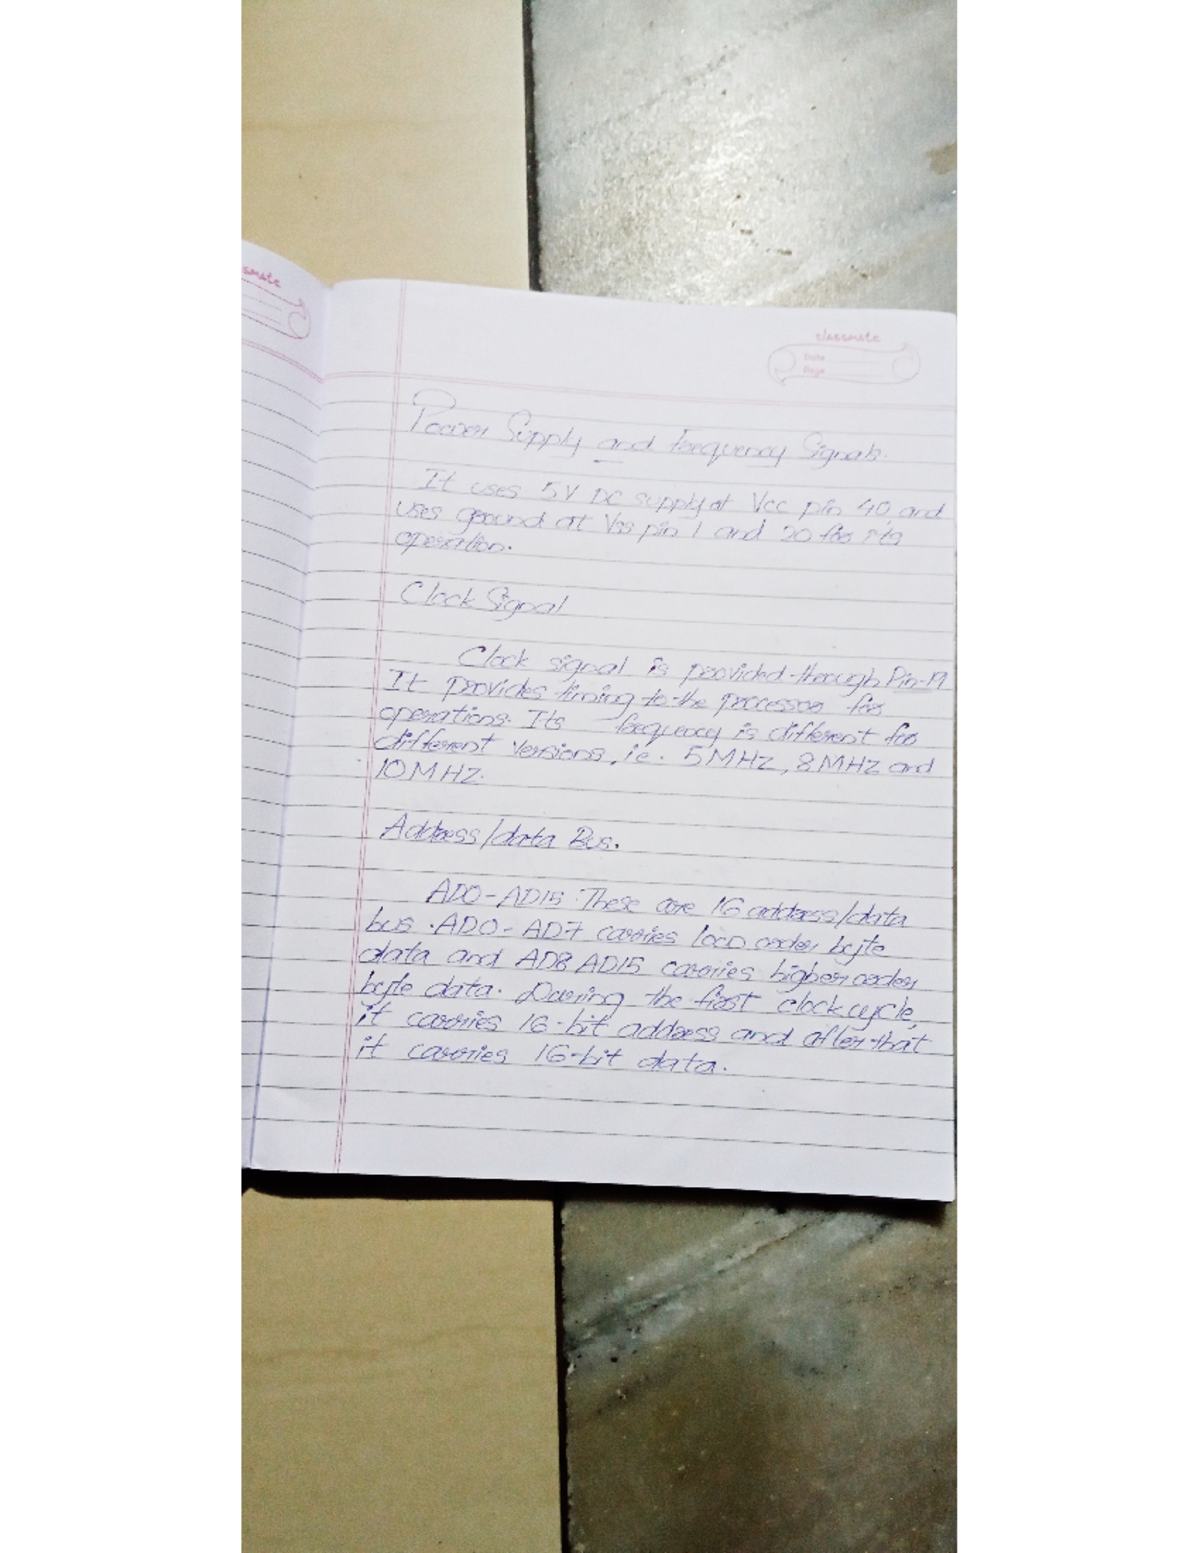 smate
classmate
Date
Page
Power Supply and frequency Signals.
It uses 5V DC supply at Vcc pin 40, and
uses ground at Vss pin 1 and 20 for its
operation.
Clock Signal
Clock signal is provided through Pin-19
It provides timing to the processor for
operations. Its frequency is different for
different versions, i.e. 5MHz, 8MHz and
10MHZ.
Address/data Bus.
AD0-AD15. These are 16 address/data
bus. AD0-AD7 carries low order byte
data and AD8 AD15 carries higher order
byte data. During the first clock cycle,
it carries 16-bit address and after that
it carries 16-bit data.